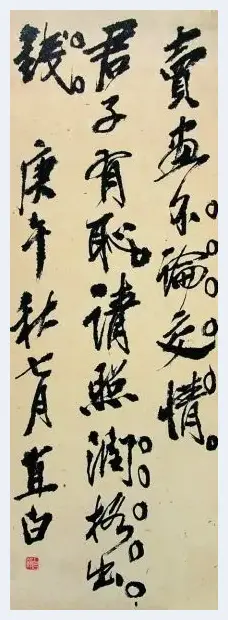 賣畫不論交情
君子有恥請照潤格出
錢庚午秋七月直白